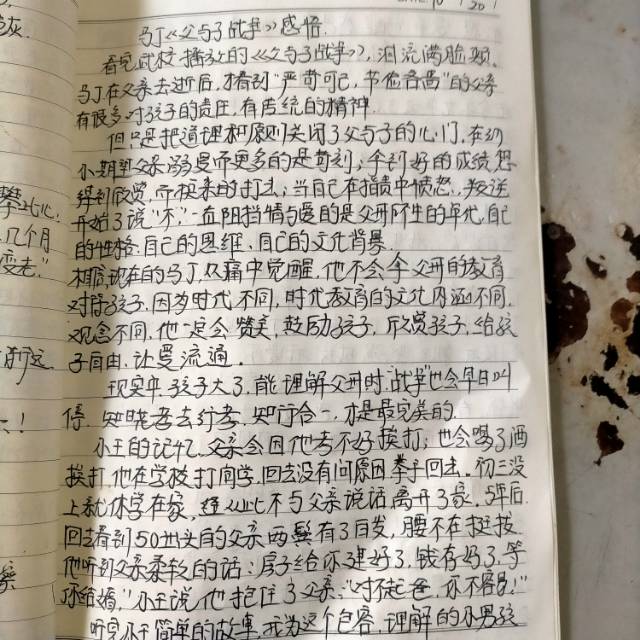 10 20
马丁《父与子战争》感悟.
看完武校播放的《父与子战争》,泪流满脸颊.
马丁在父亲去逝后,才看到"严苛可己,节俭吝啬"的父亲
有很多对孩子的责任,有传统的精神
但只是把道理和原则关闭了父与子的心门,在幼
小期望父亲的爱而更多的是苛刻;拿到好的成绩想
得到欣赏,而换来的打击;当自己在指责中愤怒.叛逆
开始了说"不"一直阻挡情与爱的是父母所生的年代.自己
的性格.自己的思维.自己的文化背景.
相信,现在的马丁,从痛中觉醒,他不会拿父母的教育
对待孩子,因为时代不同,时代教育的文化内涵不同,
观念不同,他一定会赞美,鼓励孩子,欣赏孩子,给孩
子自由,让爱流通.
现实中,孩子大了,能理解父母时,"战争"也会早日叫
停.知晓孝去行孝.知行合一,才是最完美的.
小王的记忆,父亲会因他考不好挨打;也会喝了酒
挨打.他在学校打同学,回去没有问原因拳子回去.初三没
上就休学在家,从此不与父亲说话离开了家.5年后
回去看到50出头的父亲两鬓有了白发,腰不在挺拔
他听到父亲柔软的话:房子给你建好了.钱存好了,等
你结婚."小王说,他抱住了父亲:"对不起爸,你不容易!"
听完小王简单的故事,我为这个包容,理解的小男孩
攀比心!
几个月
变老"